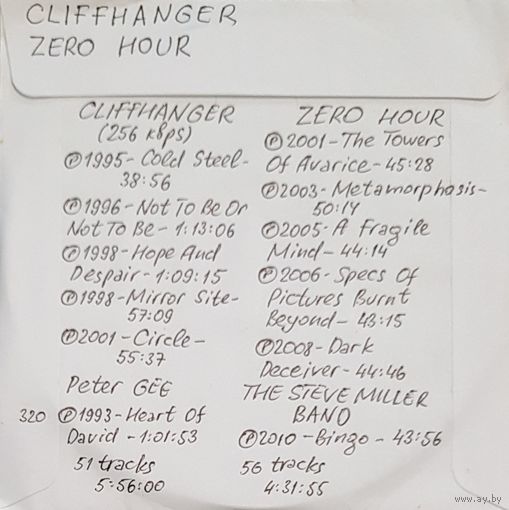 CLIFFHANGER
ZERO HOUR
CLIFFHANGER
(256 kBps)
Ⓟ1995-Cold Steel-
38:56
Ⓟ1996-Not To Be Or
Not To Be-1:13:06
Ⓟ1998-Hope And
Despair-1:09:15
Ⓟ1998-Mirror Site-
57:09
Ⓟ2001-Circle-
55:37
Peter GEE
320 Ⓟ1993-Heart Of
David-1:01:53
51 tracks
5:56:00
ZERO HOUR
Ⓟ2001-The Towers
Of Avarice-45:28
Ⓟ2003-Metamorphosis-
50:14
Ⓟ2005-A Fragile
Mind-44:14
Ⓟ2006-Specs Of
Pictures Burnt
Beyond-43:15
Ⓟ2008-Dark
Deceiver-44:46
THE STEVE MILLER
BAND
Ⓟ2010-Bingo-43:56
56 tracks
4:31:55
www.ay.by